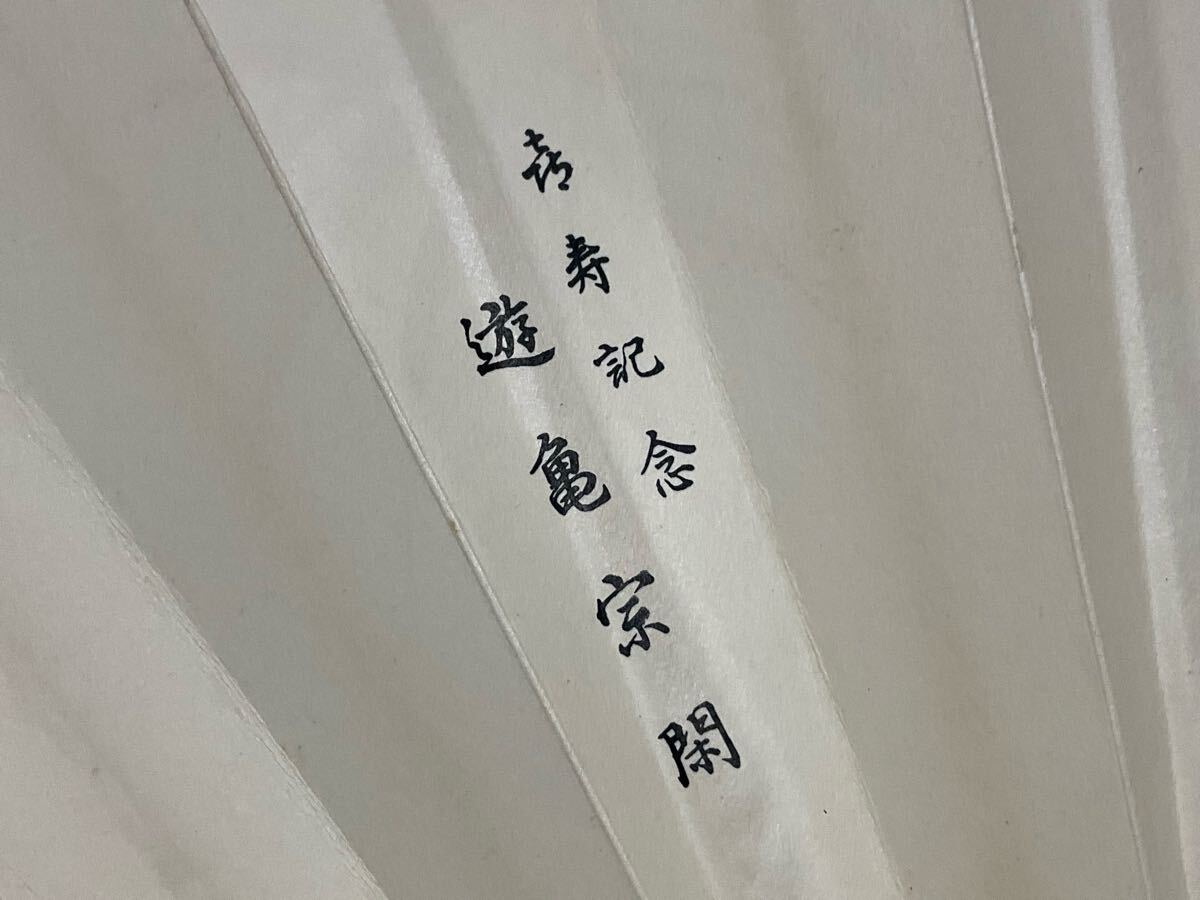 喜寿記念
遊亀宗閑